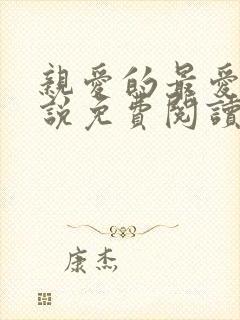 親愛的最愛
說免費閱讀
康杰